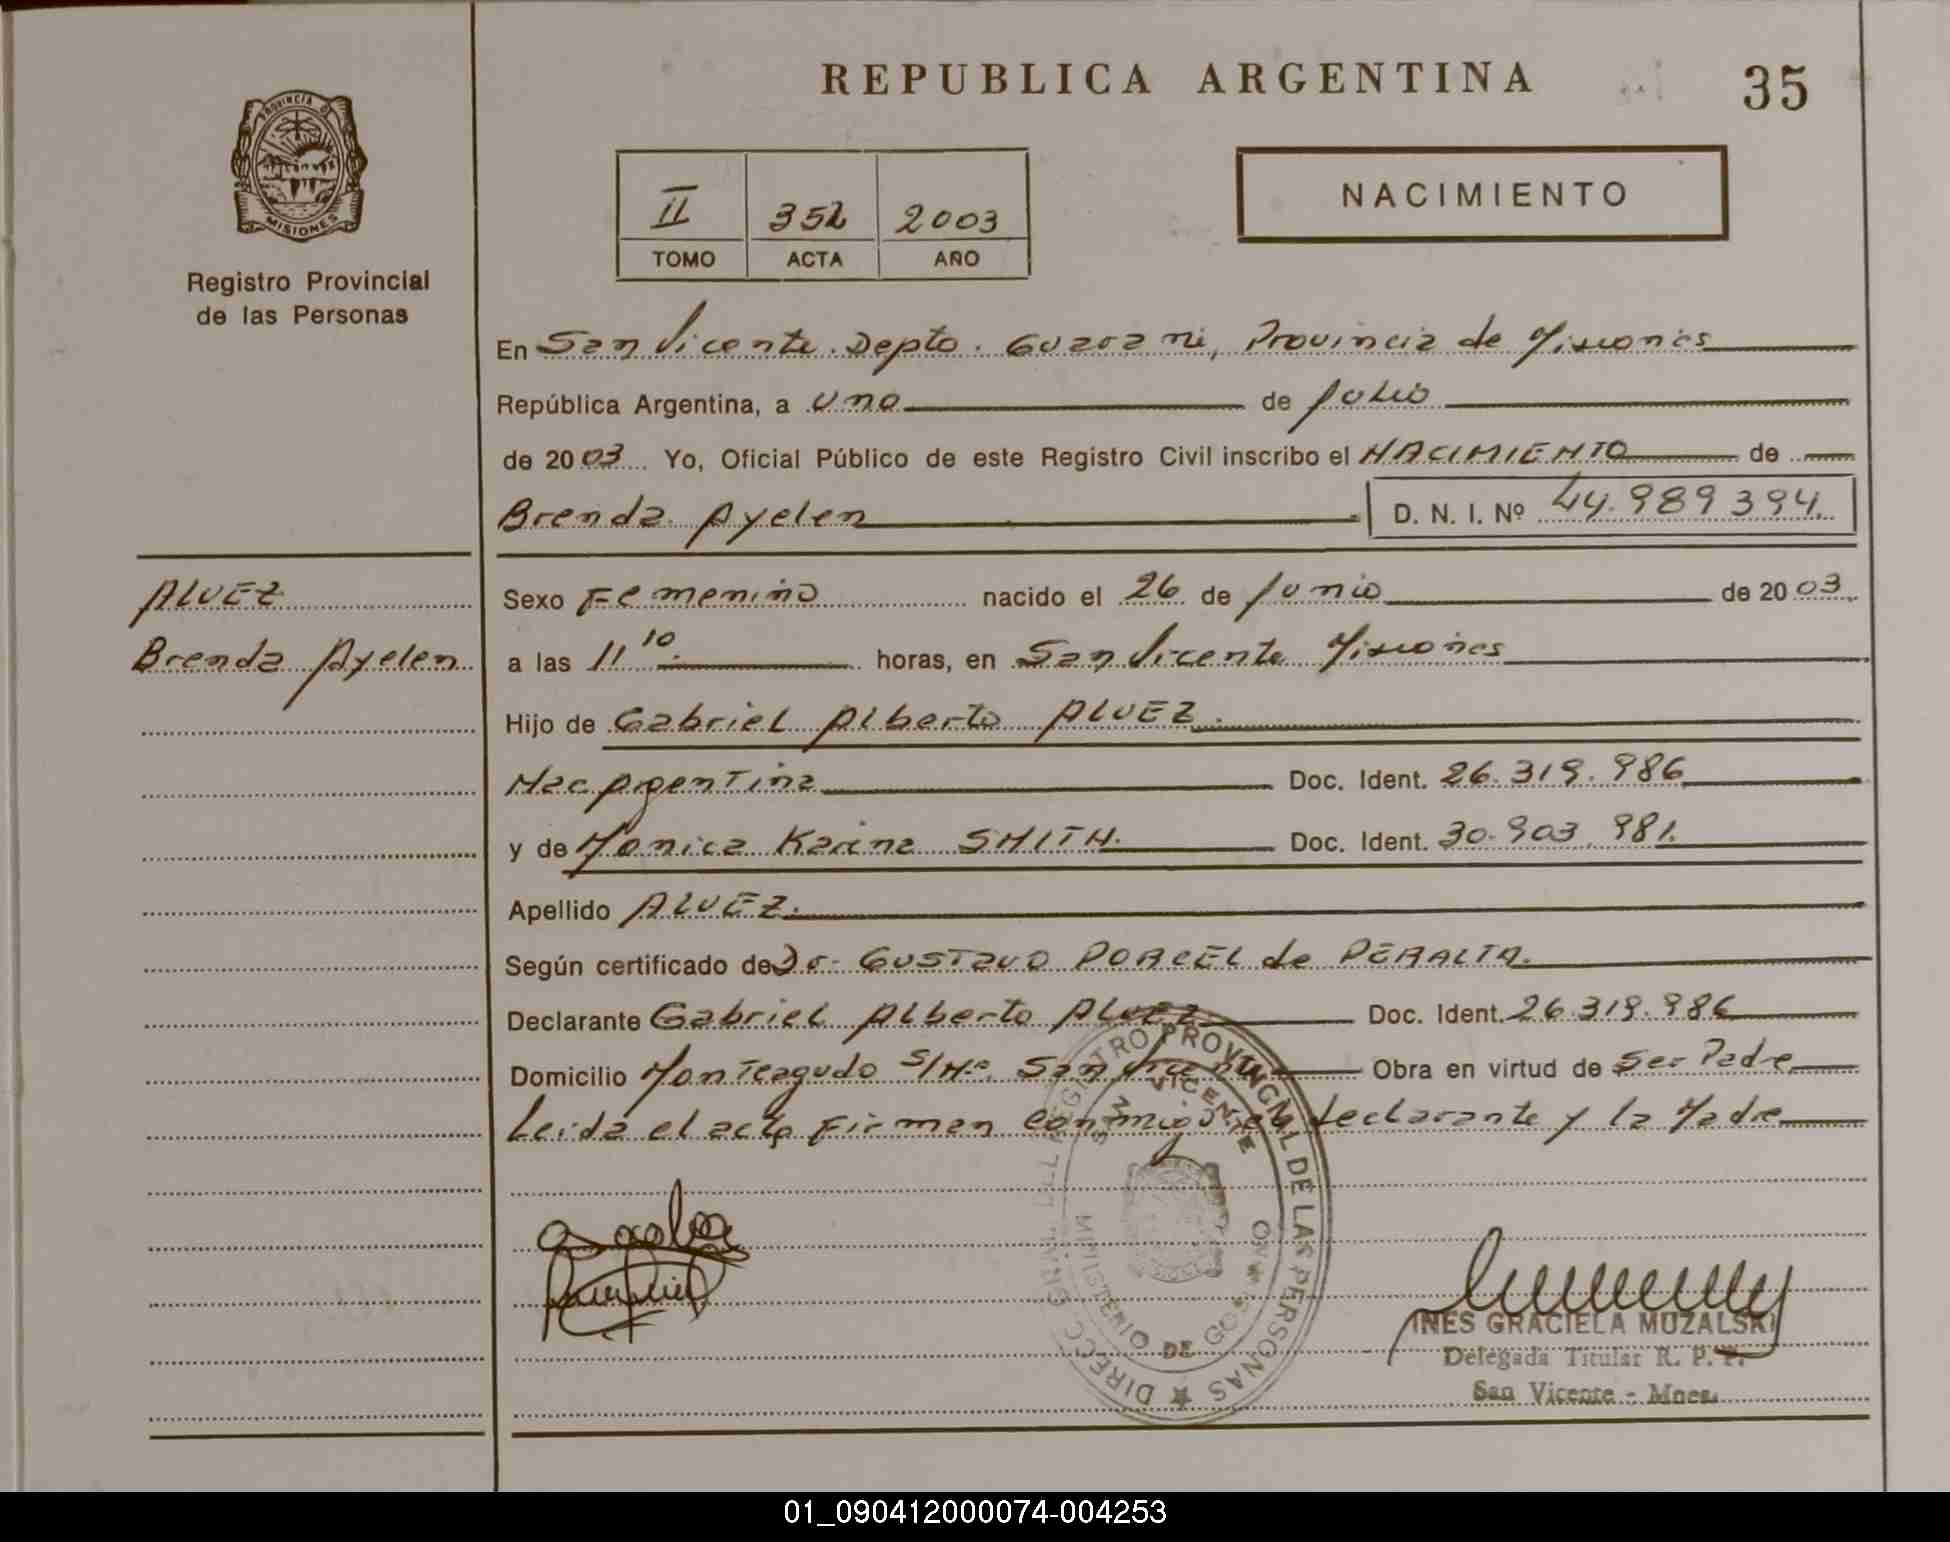 REPUBLICA ARGENTINA
35
PROVINCIA D
MISIONES
Registro Provincial
de las Personas
II 352 2003
TOMO ACTA AÑO
NACIMIENTO
En San Vicente. Depto. Guarani, Provincia de Misiones
República Argentina, a uno de Julio
de 2003. Yo, Oficial Público de este Registro Civil inscribo el NACIMIENTO de
Brenda Ayelen D. N. I. Nº 44.989394.
ALVEZ
Brenda Ayelen
Sexo Femenino nacido el 26 de Junio de 2003
a las 11 10. horas, en San Vicente Misiones
Hijo de Gabriel Alberto ALVEZ.
Nac Argentina Doc. Ident. 26.319.986
y de Monica Karina SMITH. Doc. Ident. 30.903.981.
Apellido ALVEZ.
Según certificado de Dr. GUSTAVO PORCEL de PERALTA.
Declarante Gabriel Alberto ALVEZ Doc. Ident. 26.319.986
Domicilio Monteagudo S/Nº. San Vicente Obra en virtud de Ser Padre
Leida el acta Firman Conmigo el declarante y la Madre
REGISTRO PROVINCIAL DE LAS PERSONAS
SAN VICENTE
MINISTERIO DE GOB
INES GRACIELA MUZALSKI
Delegada Titular R. P. P.
San Vicente - Mnes.
01_090412000074-004253